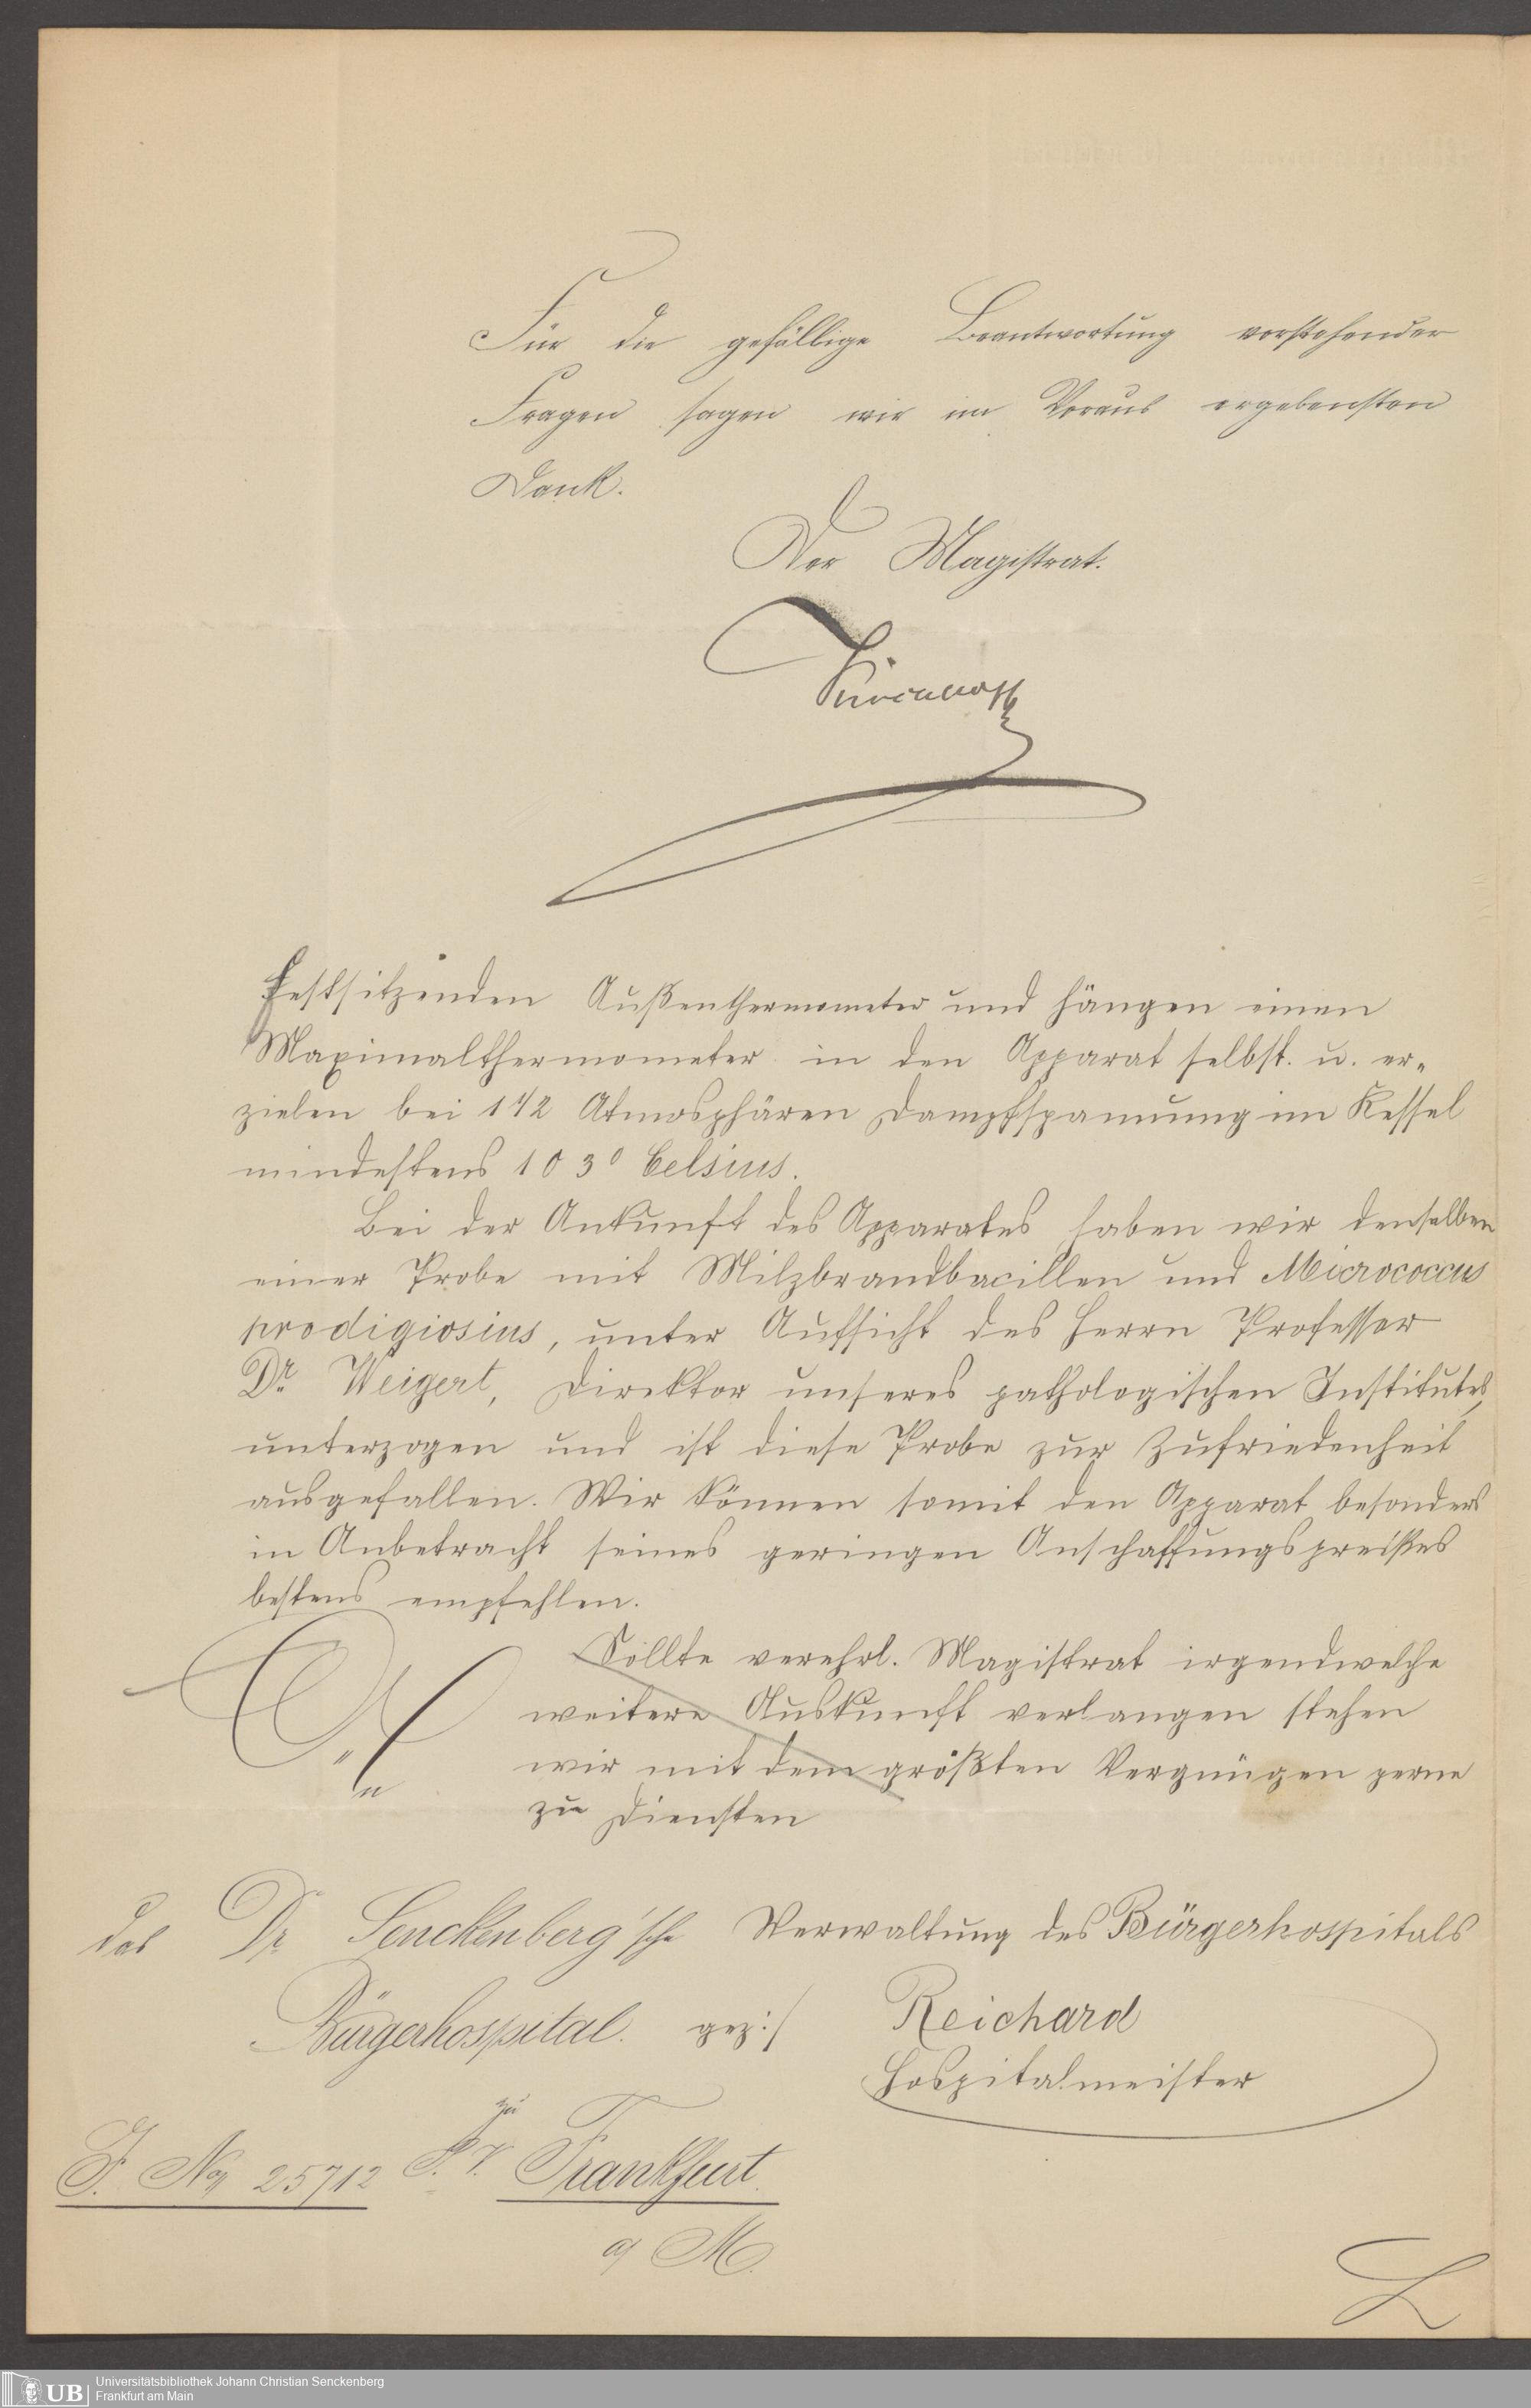 Für die gefällige Beantwortung vorstehender
Fragen sagen wir im Voraus ergebensten
Dank.
Der Magistrat.
festsitzenden Außenthermometer und hängen einen
Maximalthermometer in den Apparat selbst. u. er-
zielen bei 1 1/2 Atmosphären Dampfspannung im Kessel
mindestens 103° Celsius.
Bei der Ankunft des Apparates haben wir denselben
einer Probe mit Milzbrandbacillen und Micrococcus
prodigiosius, unter Aufsicht des Herrn Professor
Dr. Weigert, Direktor unseres pathologischen Institutes,
unterzogen und ist diese Probe zur Zufriedenheit
ausgefallen. Wir können somit den Apparat besonders
in Anbetracht seines geringen Anschaffungspreißes
bestens empfehlen.
Sollte verehrl. Magistrat irgendwelche
weitere Auskunft verlangen stehen
wir mit dem größten Vergnügen gerne
zu Diensten
An
das Dr Senckenberg'sche
Bürgerhospital.
zu
Frankfurt
a/ M.
Verwaltung des Bürgerhospitals
gez:/ Reichard
Hospitalmeister
J. No 25712
Universitätsbibliothek Johann Christian Senckenberg
Frankfurt am Main
UB